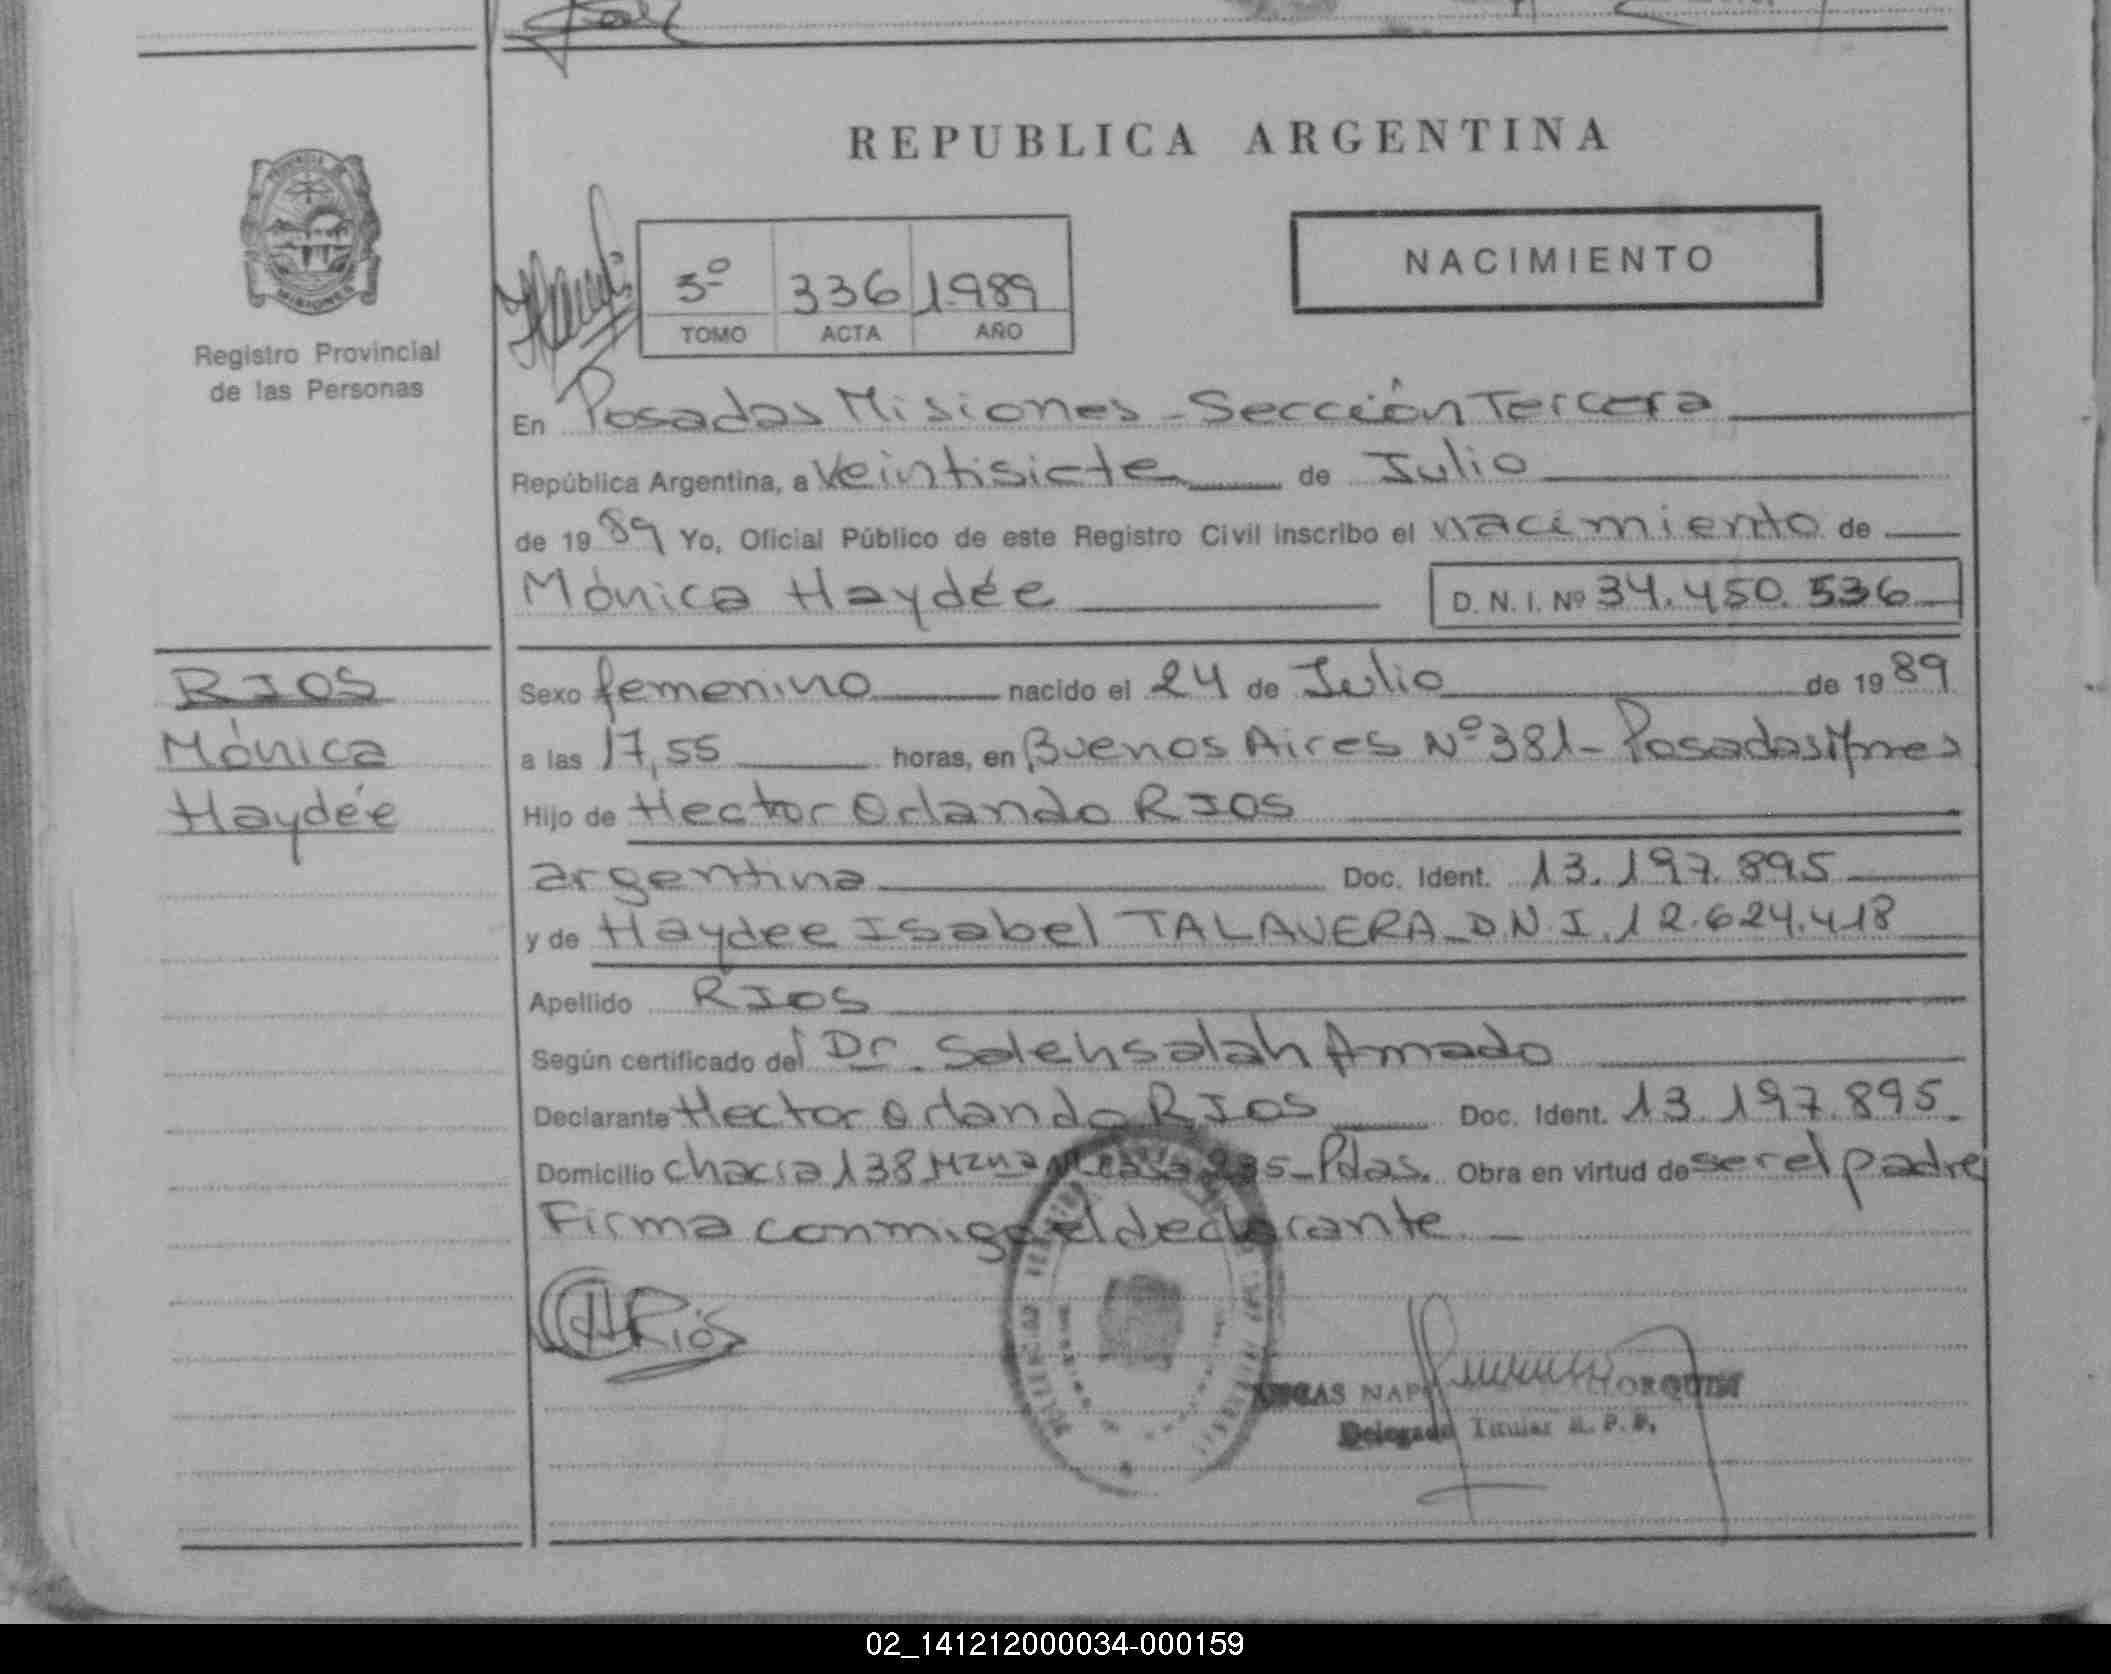 REPUBLICA ARGENTINA
MISIONES
Registro Provincial
de las Personas
NACIMIENTO
3º 336 1989
TOMO ACTA AÑO
En Posadas Misiones - Sección Tercera
República Argentina, a Veintisiete de Julio
de 1989 Yo, Oficial Público de este Registro Civil inscribo el nacimiento de
Mónica Haydée D. N. I. Nº 34.450.536
RIOS
Mónica
Haydée
Sexo femenino nacido el 24 de Julio de 1989
a las 17,55 horas, en Buenos Aires Nº 381 - Posadas Mnes
Hijo de Hector Orlando RIOS
argentina Doc. Ident. 13.197.895
y de Haydee Isabel TALAVERA D.N.I. 12.624.418
Apellido RIOS
Según certificado del Dr. Salehsalah Amado
Declarante Hector Orlando RIOS Doc. Ident. 13.197.895.
Domicilio chacra 138 Mzna - Pdas. Obra en virtud de ser el padre
Firma conmigo el declarante
H Rios
Delegado Titular R. P. P.
02_141212000034-000159